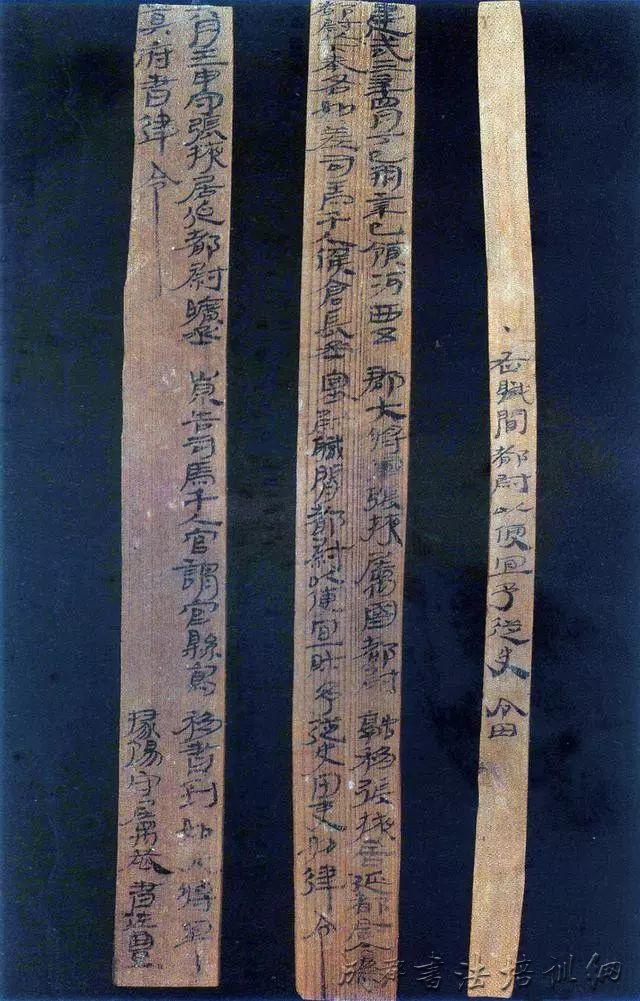 ·右職間都尉以便宜予從史令田
建武三年四月丁巳朔辛巳領河西五郡大將軍張掖屬國都尉融移張掖居延都尉今為
都尉以下奉各如差司馬千人候倉長丞塞尉職間都尉以便宜財予從史田吏如律令
六月壬申守張掖居延都尉曠丞崇告司馬千人官謂官縣寫移書到如大將軍
莫府書律令
掾陽守屬恭書佐豐
書法培訓網